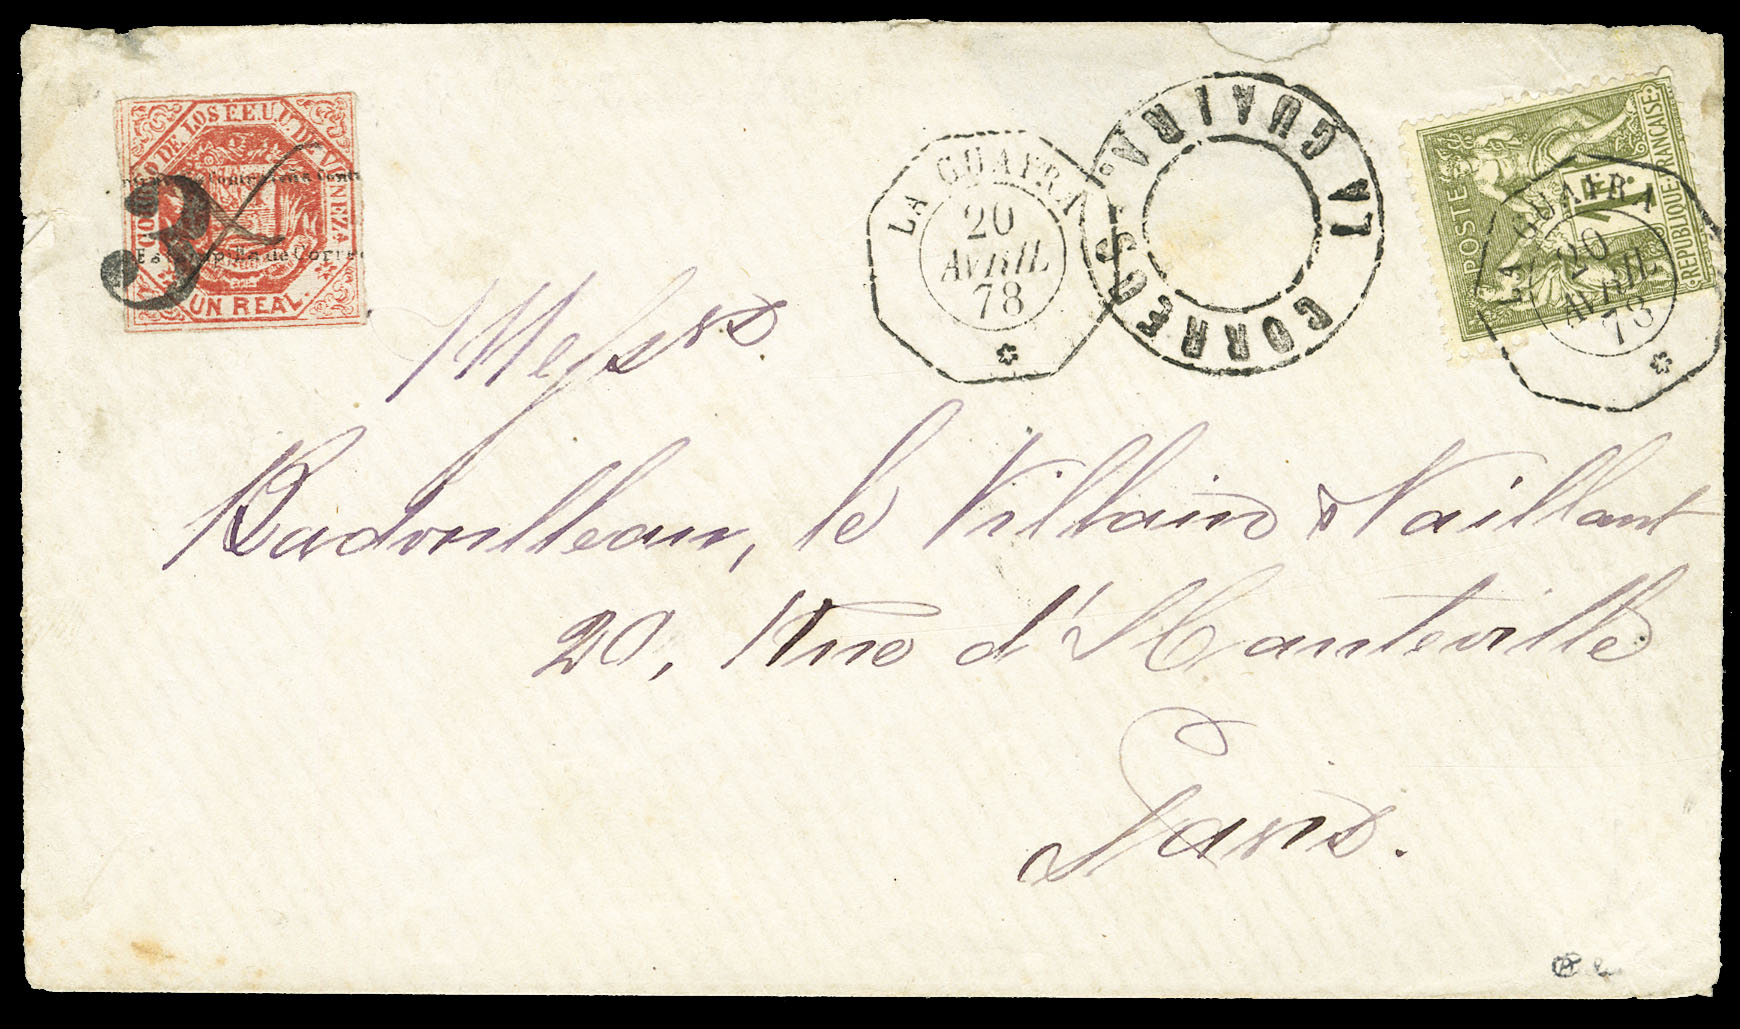 CORREO DE LOS E.E.U.U. DE VENEZA.
Contra
Estampillas de Correo
UN REAL.
3
LA GUAIRA
20
AVRIL
78
CORREOS
LA GUAIRA.
POSTES
1F.
REPUBLIQUE·FRANÇAISE
LA GUAIRA
20
AVRIL
78
Messrs
Badouilleau, le Villain & Vaillant
20, Rue d'Hauteville
Paris.